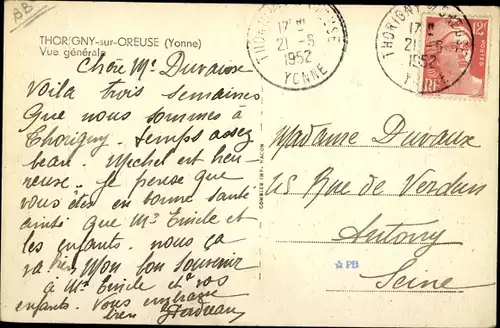 BB
THORIGNY-sur-OREUSE (Yonne)
Vue générale
Chère Me Duvaux
Voilà trois semaines
que nous sommes à
Thorigny. temps assez
beau. Michel est heu-
reuse. Je pense que
vous êtes en bonne santé
ainsi que Mr Emile et
les enfants. nous ça
va bien Mon bon souvenir
à Mr Emile et à vos
enfants. Vous embrasse
bien
THORIGNY S/OREUSE
17H
21 -5
1952
YONNE
THORIGNY S/OREUSE
17H
21 -5
1952
YONNE
2F
POSTES
RF
COMBIER IMP. MACON
Madame Duvaux
45 Rue de Verdun
Antony
Seine
PB